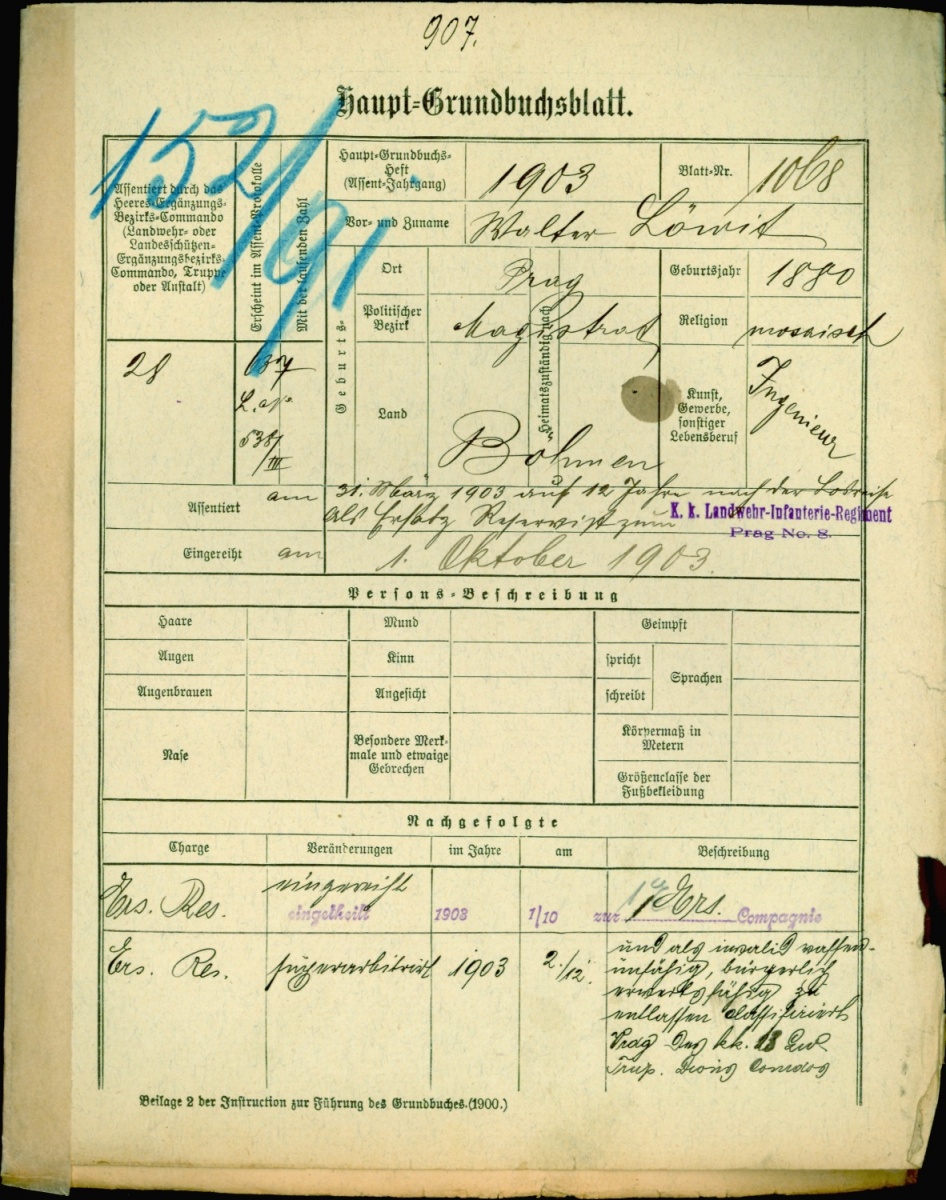 907.
Haupt=Grundbuchsblatt.
152/91
Assentiert durch das
Heeres-Ergänzungs-
Bezirks-Commando
(Landwehr- oder
Landesschützen-
Ergänzungsbezirks-
Commando, Truppe
oder Anstalt)
Erscheint im Assent-Protokolle
Mit der laufenden Zahl
Haupt-Grundbuchs-
Heft
(Assent-Jahrgang)
1903
Blatt-Nr.
1068
Vor- und Zuname
Walter Löwit
Geburts-
Ort
Prag
Geburtsjahr
1880
Politischer
Bezirk
Magistrat
Heimatszuständig nach
Religion
mosaisch
28
637
538/III
Land
Böhmen
Kunst,
Gewerbe,
sonstiger
Lebensberuf
Ingenieur
Assentiert
am 31. März 1903 auf 12 Jahre nach der
als Ersatz Reservist zum K. k. Landwehr-Infanterie-Regiment
Prag No. 8.
Eingereiht am
1. Oktober 1903.
Persons-Beschreibung
Haare
Mund
Geimpft
Augen
Kinn
spricht
Sprachen
Augenbrauen
Angesicht
schreibt
Nase
Besondere Merk-
male und etwaige
Gebrechen
Körpermaß in
Metern
Größenclasse der
Fußbekleidung
Nachgefolgte
Charge
Veränderungen
im Jahre
am
Beschreibung
Ers. Res.
eingereiht
eingetheilt
1903
1/10
zur Ers. Compagnie
Ers. Res.
superarbitriert
1903
2./12.
und als invalid waffen-
unfähig, bürgerlich
erwerbsfähig zu
entlassen classificiert
Prag
Beilage 2 der Instruction zur Führung des Grundbuches. (1900.)